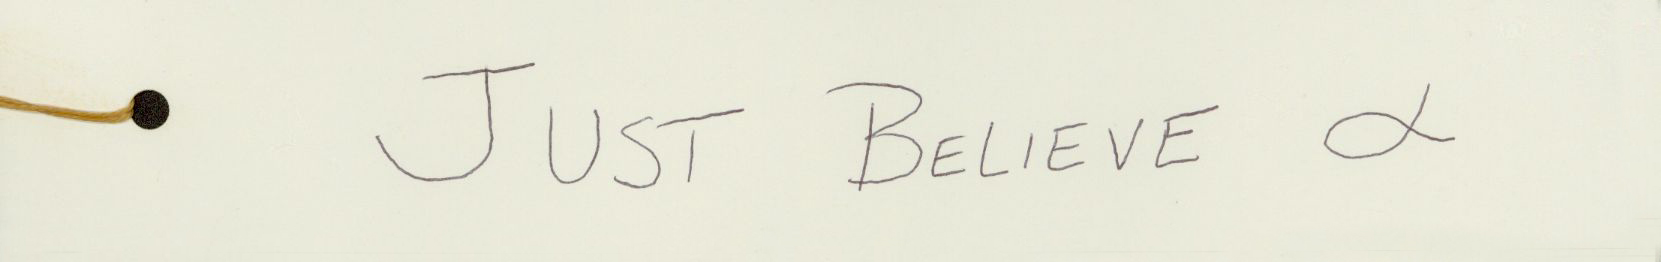 JUST BELIEVE α